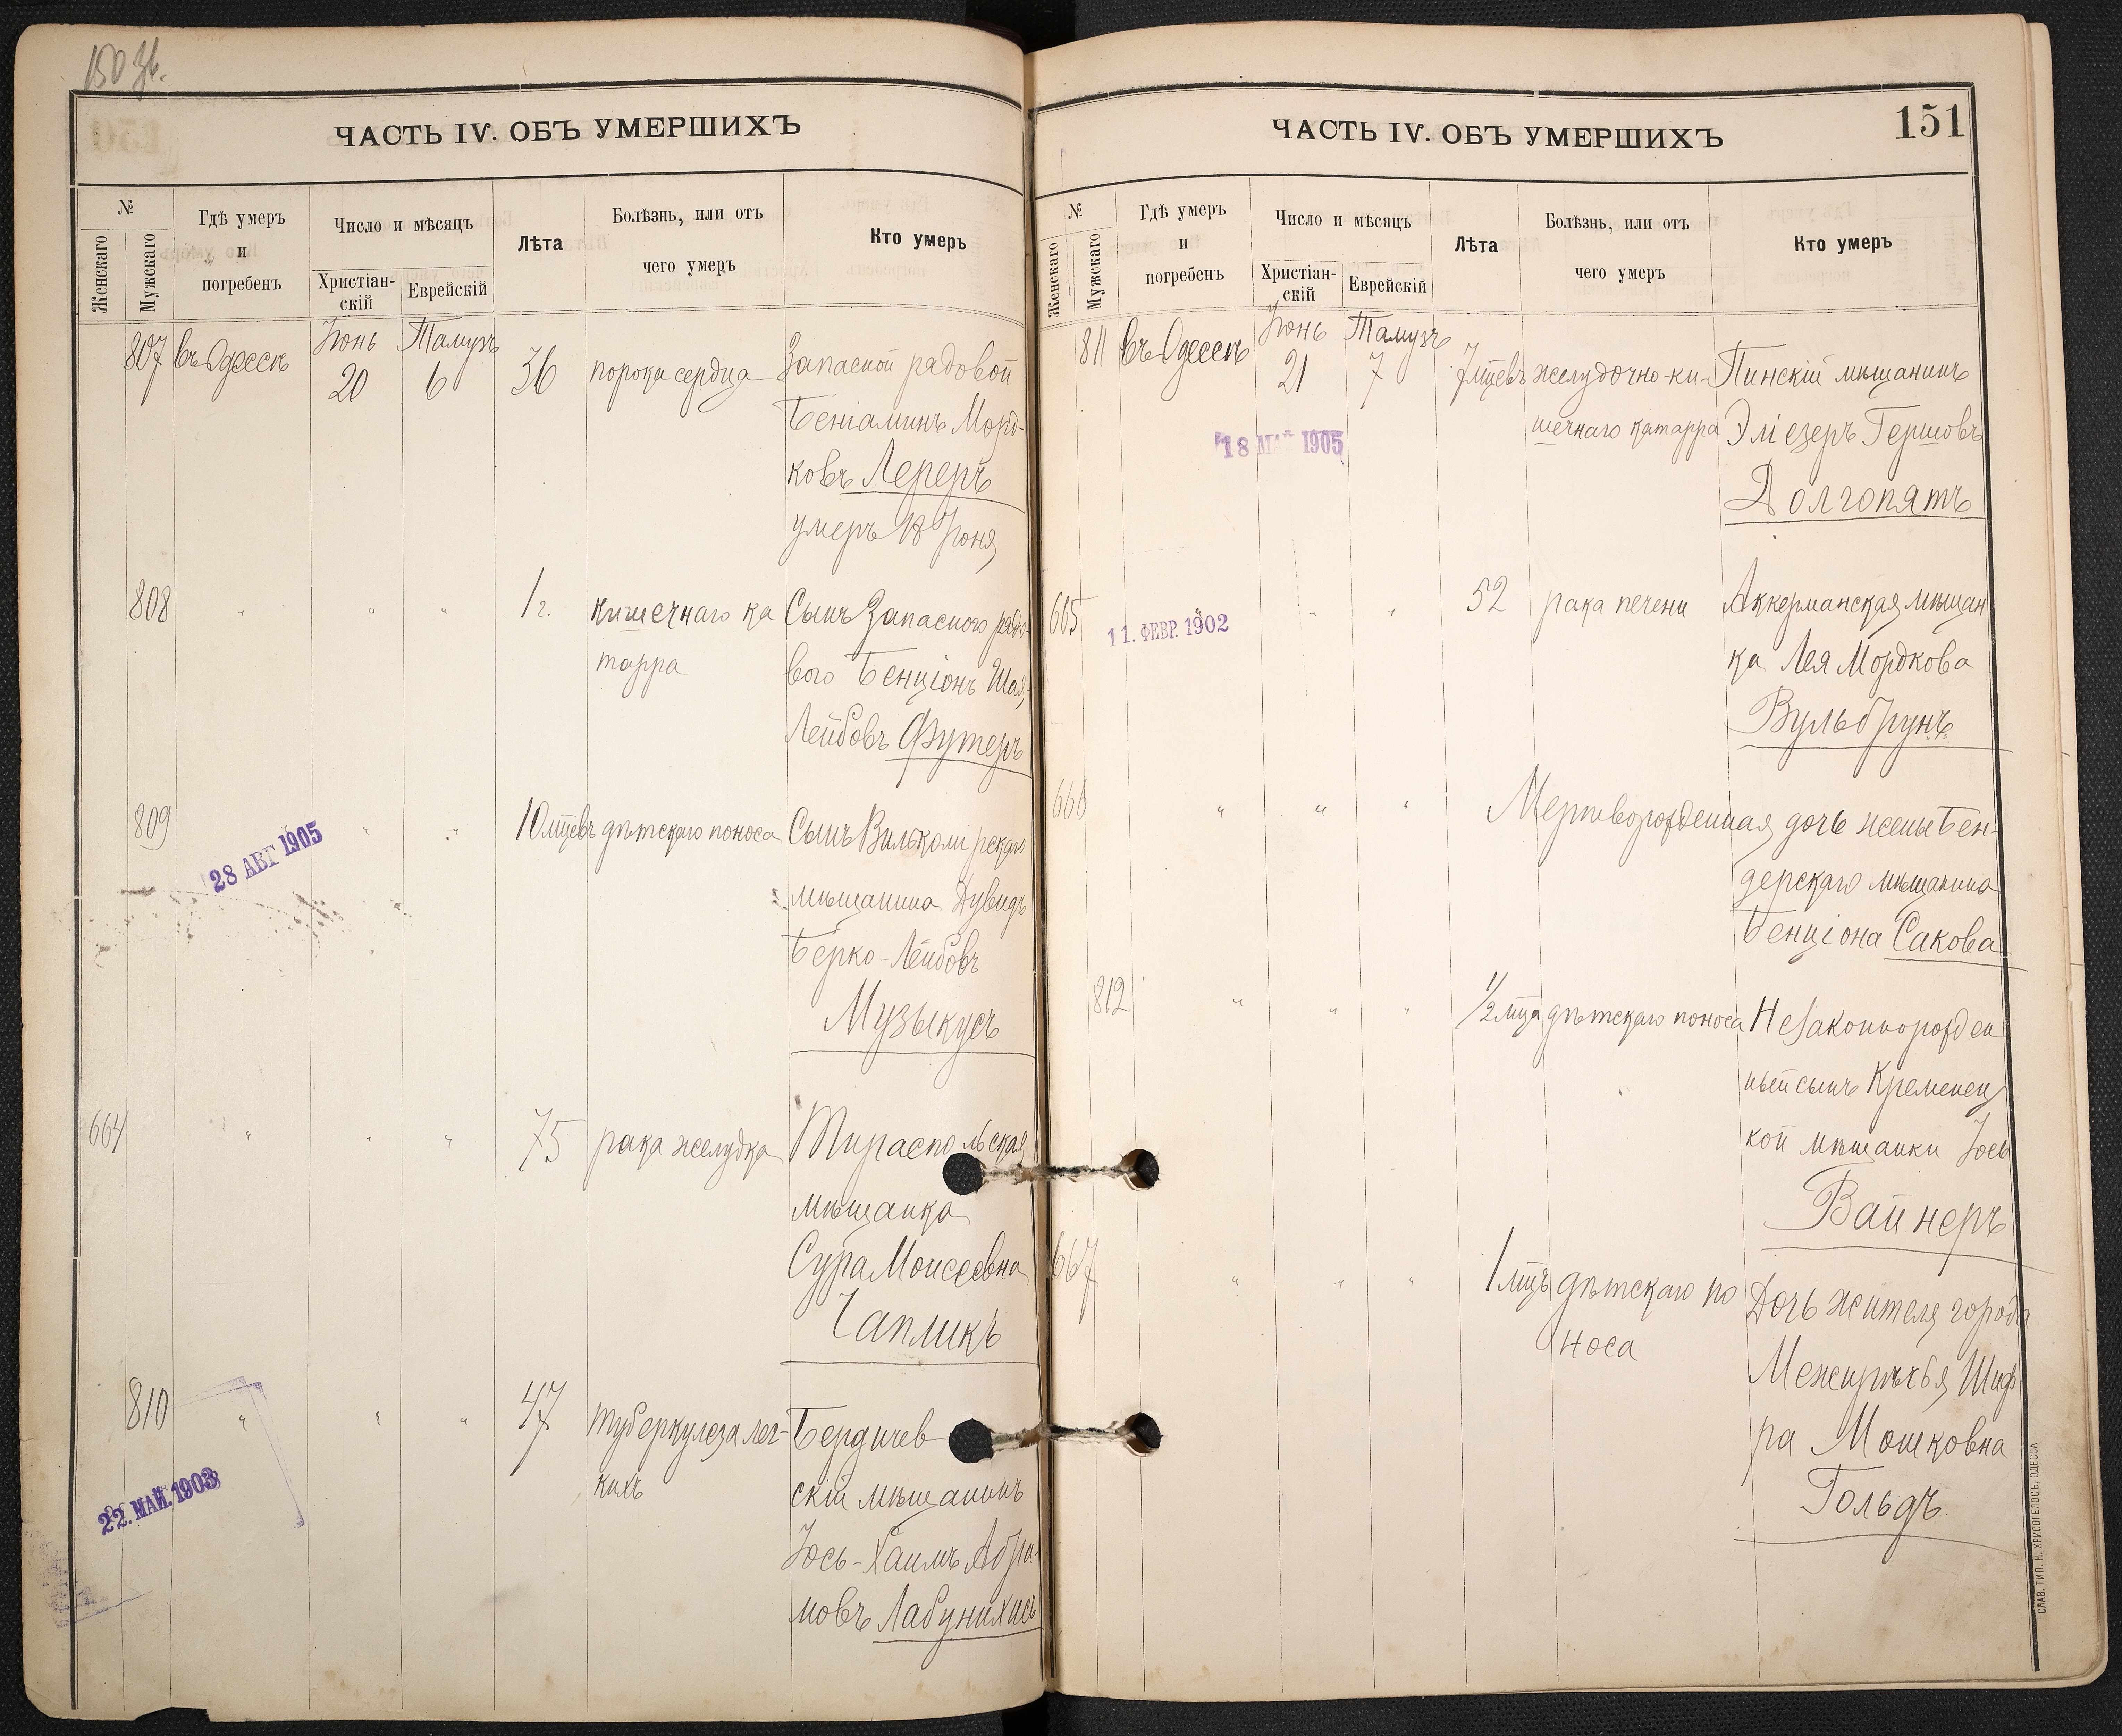 150 об.
ЧАСТЬ IV. ОБЪ УМЕРШИХЪ
№
Женскаго
Мужскаго
Гдѣ умеръ
и
погребенъ
Число и мѣсяцъ
Христіан-
скій
Еврейскій
Лѣта
Болѣзнь, или отъ
чего умеръ
Кто умеръ
807 въ Одессѣ Іюнь 20 Тамузъ 6 36 порока сердца Запасной рядовой
Беніаминъ Морд-
ковъ Лереръ
умеръ 18 Іюня
808 " " " 1 г. кишечнаго ка Сынъ Запасного рядо-
тарра вого Бенціонъ Шая-
Лейбовъ Футеръ
809 " " 10 мцевъ дѣтскаго поноса Сынъ Вилькомірскаго
28 АВГ 1905
мѣщанина Дувидъ
Берко-Лейбовъ
Музыкусъ
664 " " " 75 рака желудка Тираспольская
мѣщанка
Сура Моисеевна
Чапликъ
810 " " " 47 туберкулеза лег- Бердичев
22. МАЙ. 1903
кихъ скій мѣщанинъ
Іось-Хаимъ Абра-
мовъ Лабунихисъ
ЧАСТЬ IV. ОБЪ УМЕРШИХЪ
151
№
Женскаго
Мужскаго
Гдѣ умеръ
и
погребенъ
Число и мѣсяцъ
Христіан-
скій
Еврейскій
Лѣта
Болѣзнь, или отъ
чего умеръ
Кто умеръ
811 въ Одессѣ Іюнь 21 Тамузъ 7 7 мцевъ желудочно-ки- Пинскій мѣщанинъ
18 МАЙ 1905
шечнаго катарра Эліезеръ Гершовъ
Долгопятъ
665 " " " 52 рака печени Аккерманская мѣщан
11. ФЕВР. 1902
ка Лея Мордкова
Вульбрунъ
666 " " " Мертворожденная дочь жены Бен-
дерскаго мѣщанина
Бенціона Сакова
812 " " " 1/2 мца дѣтскаго поноса Незаконнорожден
ный сынъ Кременец
кой мѣщанки Іось
Вайнеръ
667 " " " 1 мцъ дѣтскаго по Дочь жителя города
носа Межирѣчья Шиф-
ра Мошковна
Гольдъ
СЛАВ. ТИП. Н. ХРИСОГЕЛОСЪ, ОДЕССА